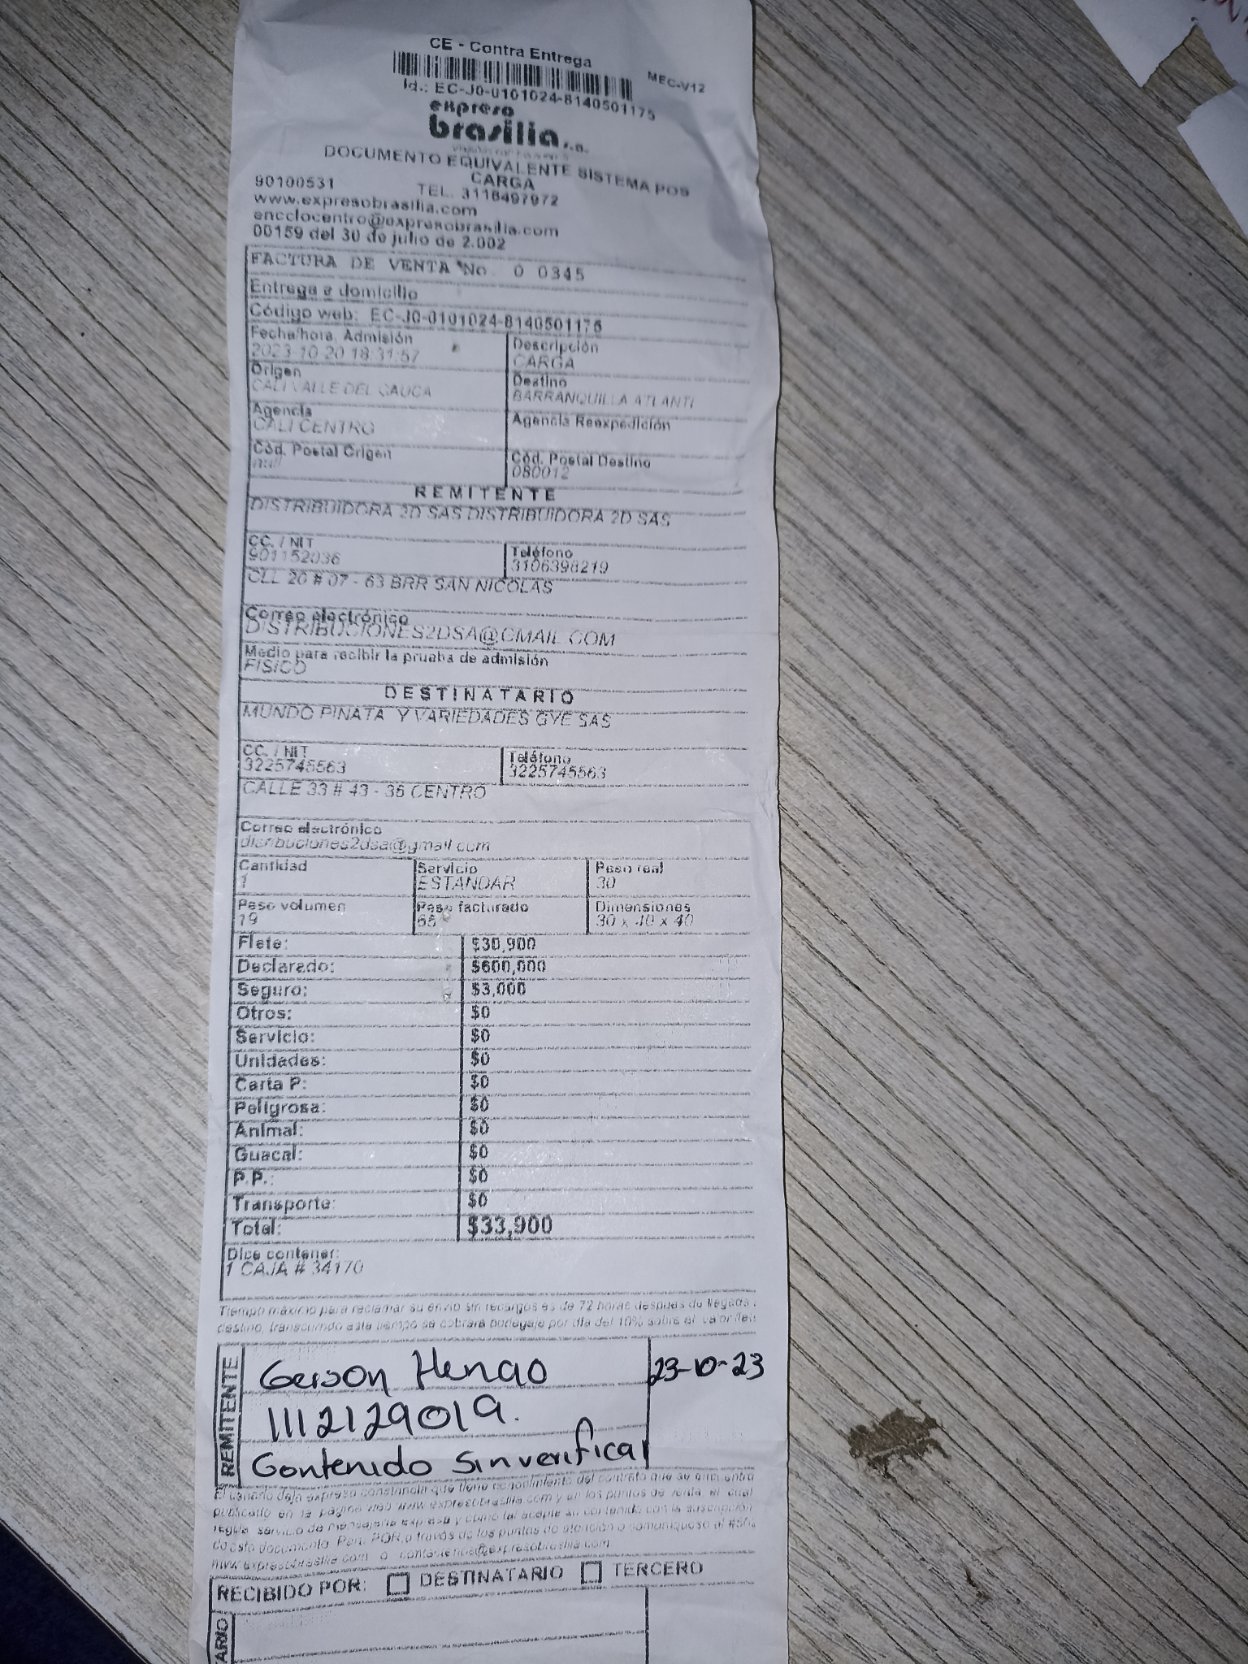 CE - Contra Entrega
MEC-V12
Id.: EC-J0-0101024-8140501175
expreso
brasilia s.a.
DOCUMENTO EQUIVALENTE SISTEMA POS
CARGA
90100531 TEL. 3116497972
www.expresobrasilia.com
encclocentro@expresobrasilia.com
00159 del 30 de julio de 2.002
FACTURA DE VENTA No. 0 0345
Entrega a domicilio
Código web: EC-J0-0101024-8140501175
Fecha/hora Admisión Descripción
2023-10-20 18:31:57 CARGA
Origen Destino
CALI VALLE DEL CAUCA BARRANQUILLA ATLANTI
Agencia Agencia Reexpedición
CALI CENTRO
Cód. Postal Origen Cód. Postal Destino
null 080012
REMITENTE
DISTRIBUIDORA 2D SAS DISTRIBUIDORA 2D SAS
CC. / NIT Teléfono
901152036 3106398219
CLL 20 # 07 - 63 BRR SAN NICOLAS
Correo electrónico
DISTRIBUCIONES2DSA@GMAIL.COM
Medio para recibir la prueba de admisión
FISICO
DESTINATARIO
MUNDO PINATA Y VARIEDADES GYE SAS
CC. / NIT Teléfono
3225745563 3225745563
CALLE 33 # 43 - 36 CENTRO
Correo electrónico
disribuciones2dsa@gmail.com
Cantidad Servicio Peso real
1 ESTANDAR 30
Peso volumen Peso facturado Dimensiones
19 55 30 x 40 x 40
Flete: $30,900
Declarado: $600,000
Seguro: $3,000
Otros: $0
Servicio: $0
Unidades: $0
Carta P: $0
Peligrosa: $0
Animal: $0
Guacal: $0
P.P.: $0
Transporte: $0
Total: $33,900
Dice contener:
1 CAJA # 34170
Tiempo máximo para reclamar su envío sin recargos es de 72 horas después de llegada
destino, transcurrido este tiempo se cobrara bodegaje por día del 10% sobre el valor
REMITENTE
Gerson Henao 23-10-23
1112129019.
Contenido Sin verificar
El usuario deja expresa constancia que tiene conocimiento del contrato que se encuentra
publicado en la página web www.expresobrasilia.com y en los puntos de venta, el cual
regula servicio de mensajería expresa y como tal acepta su contenido con la suscripción
de este documento. Para PQR a través de los puntos de atención o comuníquese al
www.expresobrasilia.com o contactenos@expresobrasilia.com
RECIBIDO POR: DESTINATARIO TERCERO
ARIO